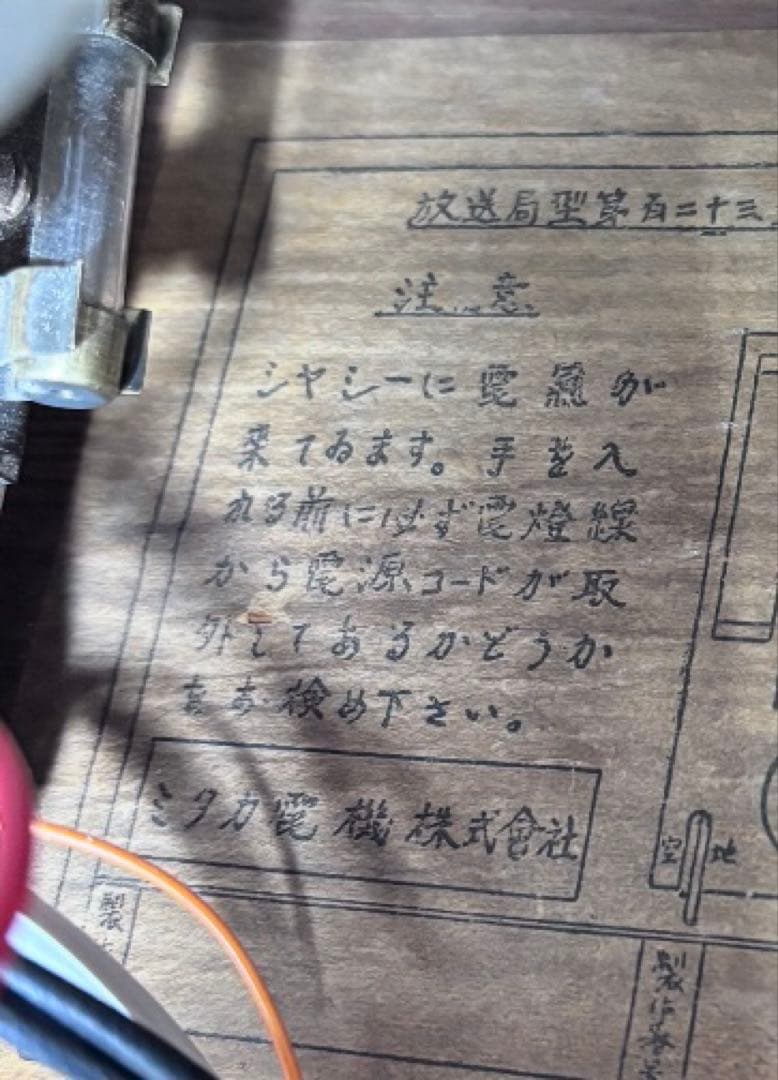 放送局型第百二十三
注意
シヤシーに電氣が
来てゐます。手を入
れる前に必ず電燈線
から電源コードが取
外してあるかどうか
をお検め下さい。
ミタカ電機株式會社
空 地
製
製作番号